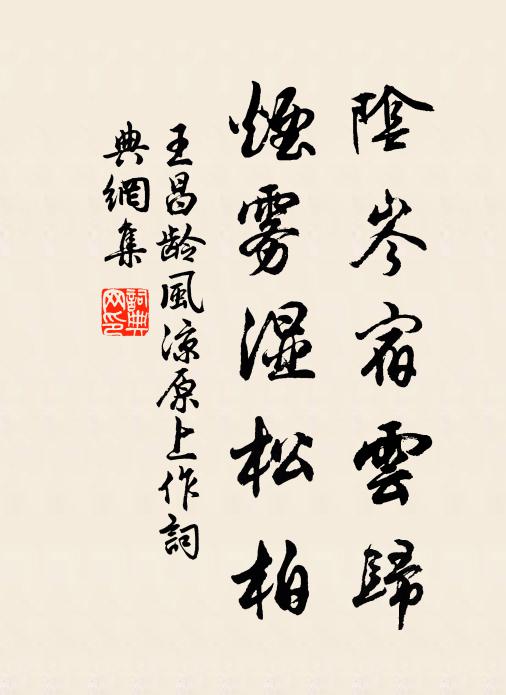 陰岑宿雲歸
煙雾濕松柏
王昌龄風凉原上作詞
典網集
詞典
网印